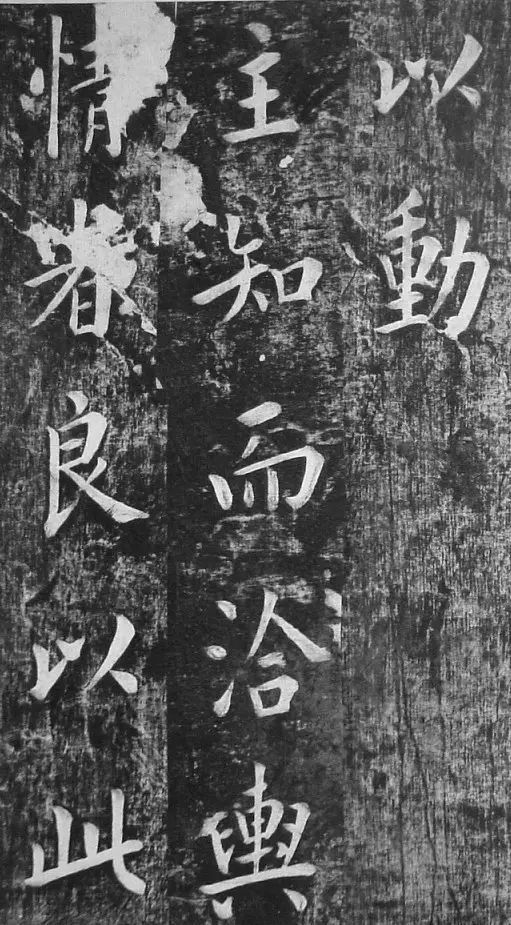 以動
主知而洽輿
情眷良以此